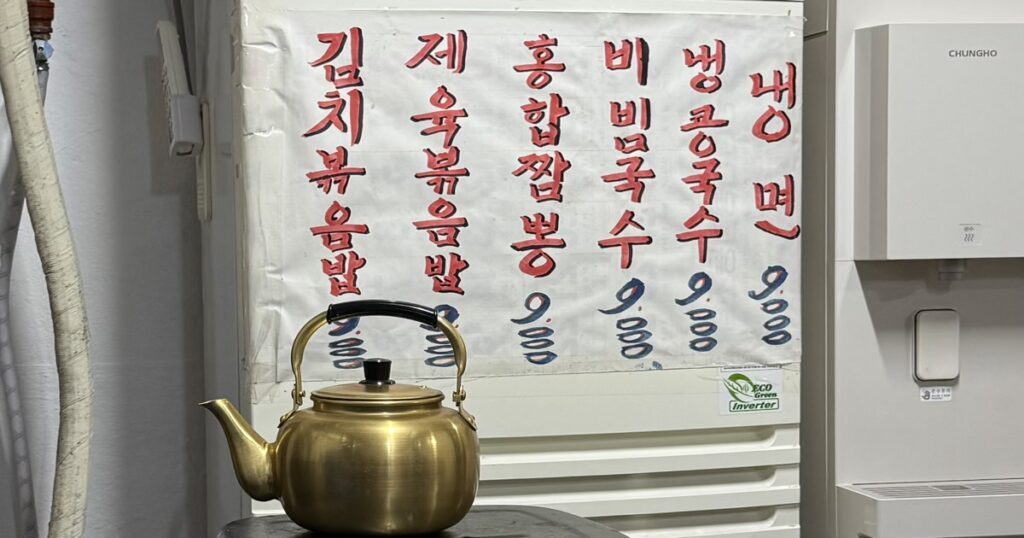 김치볶음밥
제육볶음밥
홍합짬뽕 9.000
비빔국수 9.000
냉콩국수 9.000
냉면 9.000
CHUNGHO
ECO
Green
Inverter